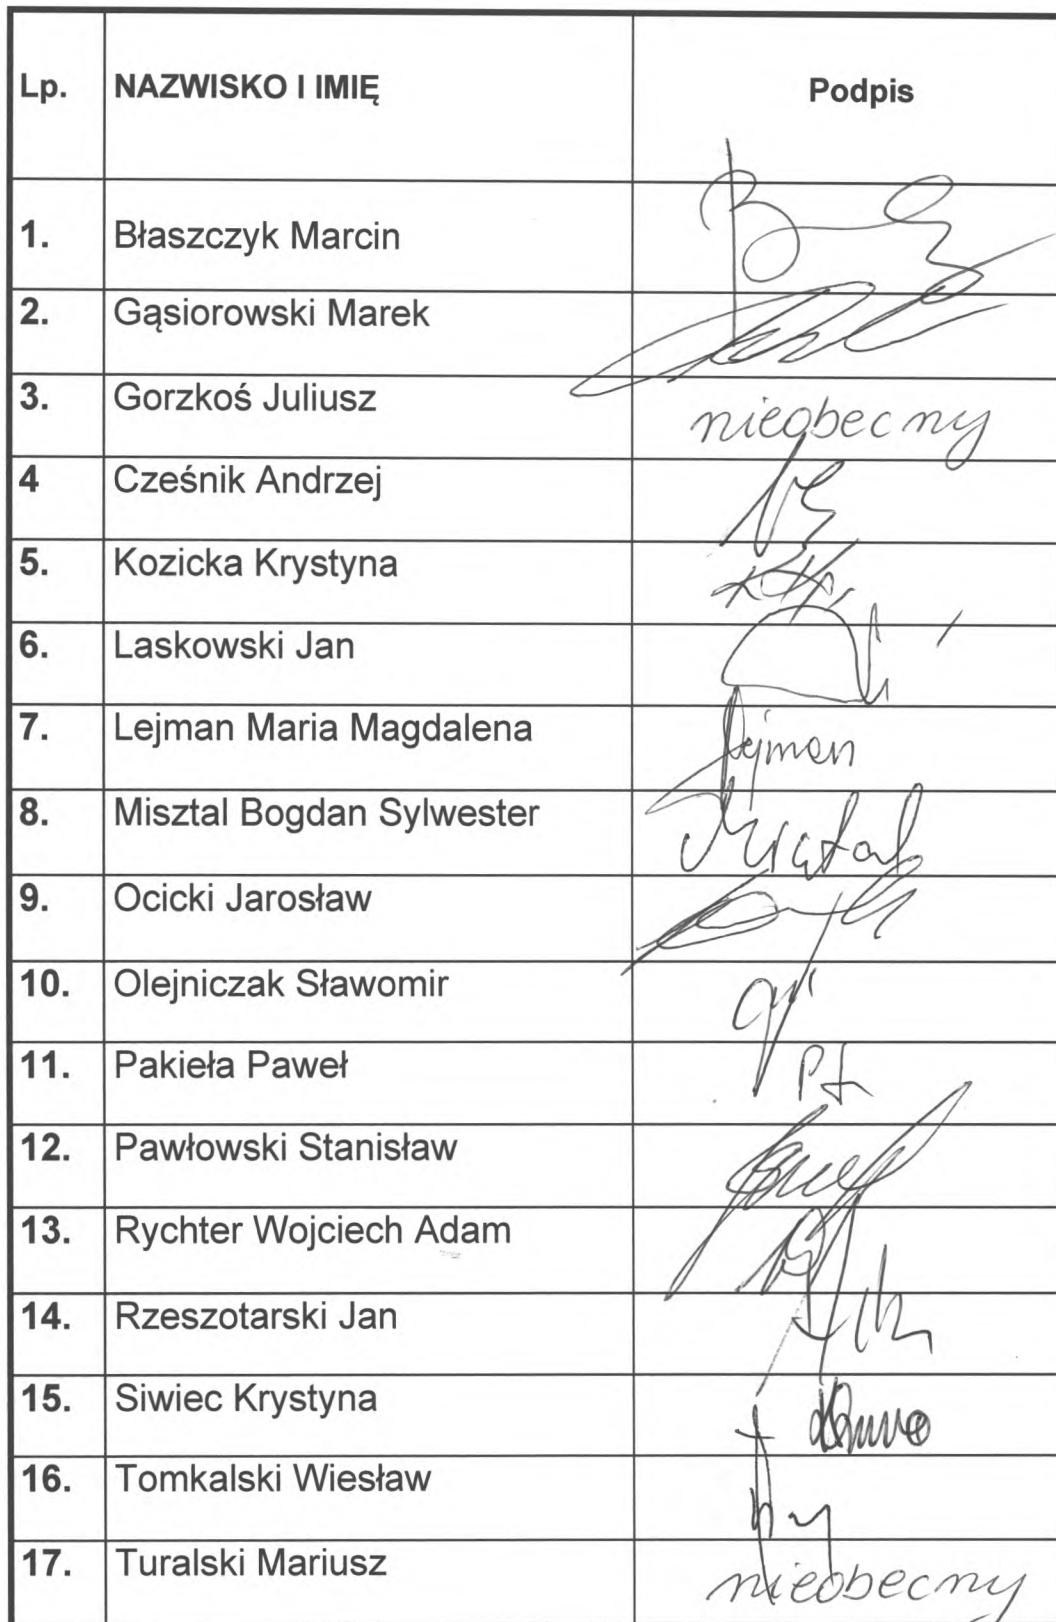 Lp. NAZWISKO I IMIĘ Podpis
1. Błaszczyk Marcin
2. Gąsiorowski Marek
3. Gorzkoś Juliusz nieobecny
4 Cześnik Andrzej
5. Kozicka Krystyna
6. Laskowski Jan
7. Lejman Maria Magdalena Lejman
8. Misztal Bogdan Sylwester Misztal
9. Ocicki Jarosław
10. Olejniczak Sławomir
11. Pakieła Paweł
12. Pawłowski Stanisław
13. Rychter Wojciech Adam
14. Rzeszotarski Jan
15. Siwiec Krystyna
16. Tomkalski Wiesław
17. Turalski Mariusz nieobecny